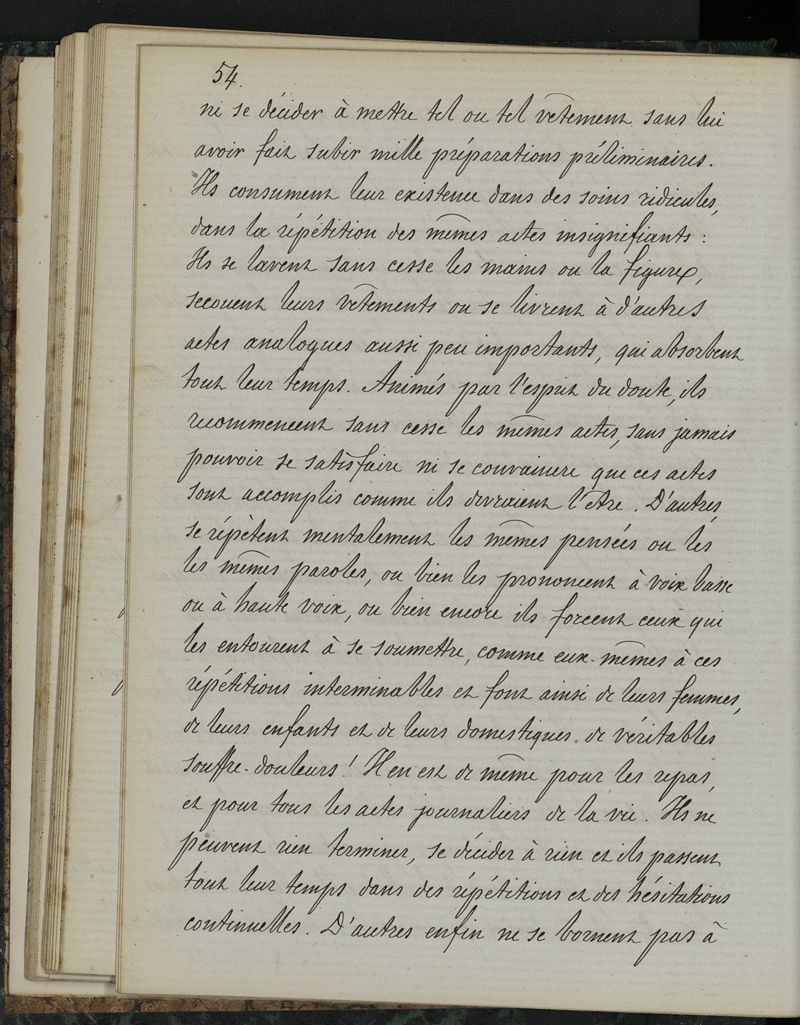 54.
ni se décider à mettre tel ou tel vêtement sans lui
avoir fait subir mille préparations préliminaires.
Ils consument leur existence dans des soins ridicules,
dans la répétition des mêmes actes insignifiants :
Ils se lavent sans cesse les mains ou la figure,
secouent leurs vêtements ou se livrent à d'autres
actes analogues aussi peu importants, qui absorbent
tout leur temps. Animés par l'esprit du doute, ils
recommencent sans cesse les mêmes actes, sans jamais
pouvoir se satisfaire ni se convaincre que ces actes
sont accomplis comme ils devraient l'être. D'autres,
se répètent mentalement les mêmes pensées ou les
les mêmes paroles, ou bien les prononcent à voix basse
ou à haute voix, ou bien encore ils forcent ceux qui
les entourent à se soumettre, comme eux-mêmes à ces
répétitions interminables et font ainsi de leurs femmes,
de leurs enfants et de leurs domestiques de véritables
souffre-douleurs ! Il en est de même pour les repas,
et pour tous les actes journaliers de la vie. Ils ne
peuvent rien terminer, se décider à rien et ils passent
tout leur temps dans des répétitions et des hésitations
continuelles. D'autres enfin ne se bornent pas à